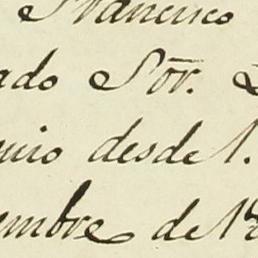 Francisco
ado Sor.
uio desde 1.
embre de 18